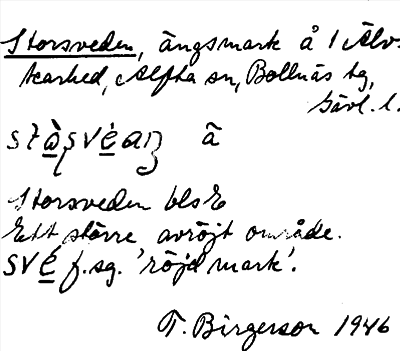 Storsveden, ängsmark å 1 Älvs-
karhed, Alfta sn, Bollnäs tg,
Gävl. l.
ståsvèan ã
Storsveden bls E
Ett större avröjt område.
své f. sg. 'röjd mark'.
T. Birgerson 1946